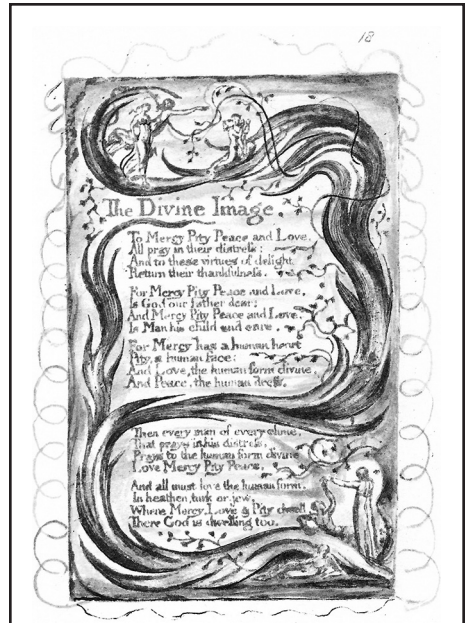 18
The Divine Image.
To Mercy Pity Peace and Love,
All pray in their distress:
And to these virtues of delight
Return their thankfulness.
For Mercy Pity Peace and Love,
Is God our father dear:
And Mercy Pity Peace and Love,
Is Man his child and care.
For Mercy has a human heart
Pity, a human face:
And Love, the human form divine,
And Peace, the human dress.
Then every man of every clime,
That prays in his distress,
Prays to the human form divine
Love Mercy Pity Peace,
And all must love the human form,
In heathen, turk or jew.
Where Mercy, Love & Pity dwell
There God is dwelling too.